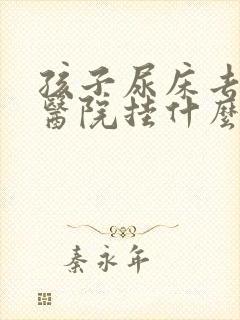 孩子尿床去
醫院挂什麼
秦永年